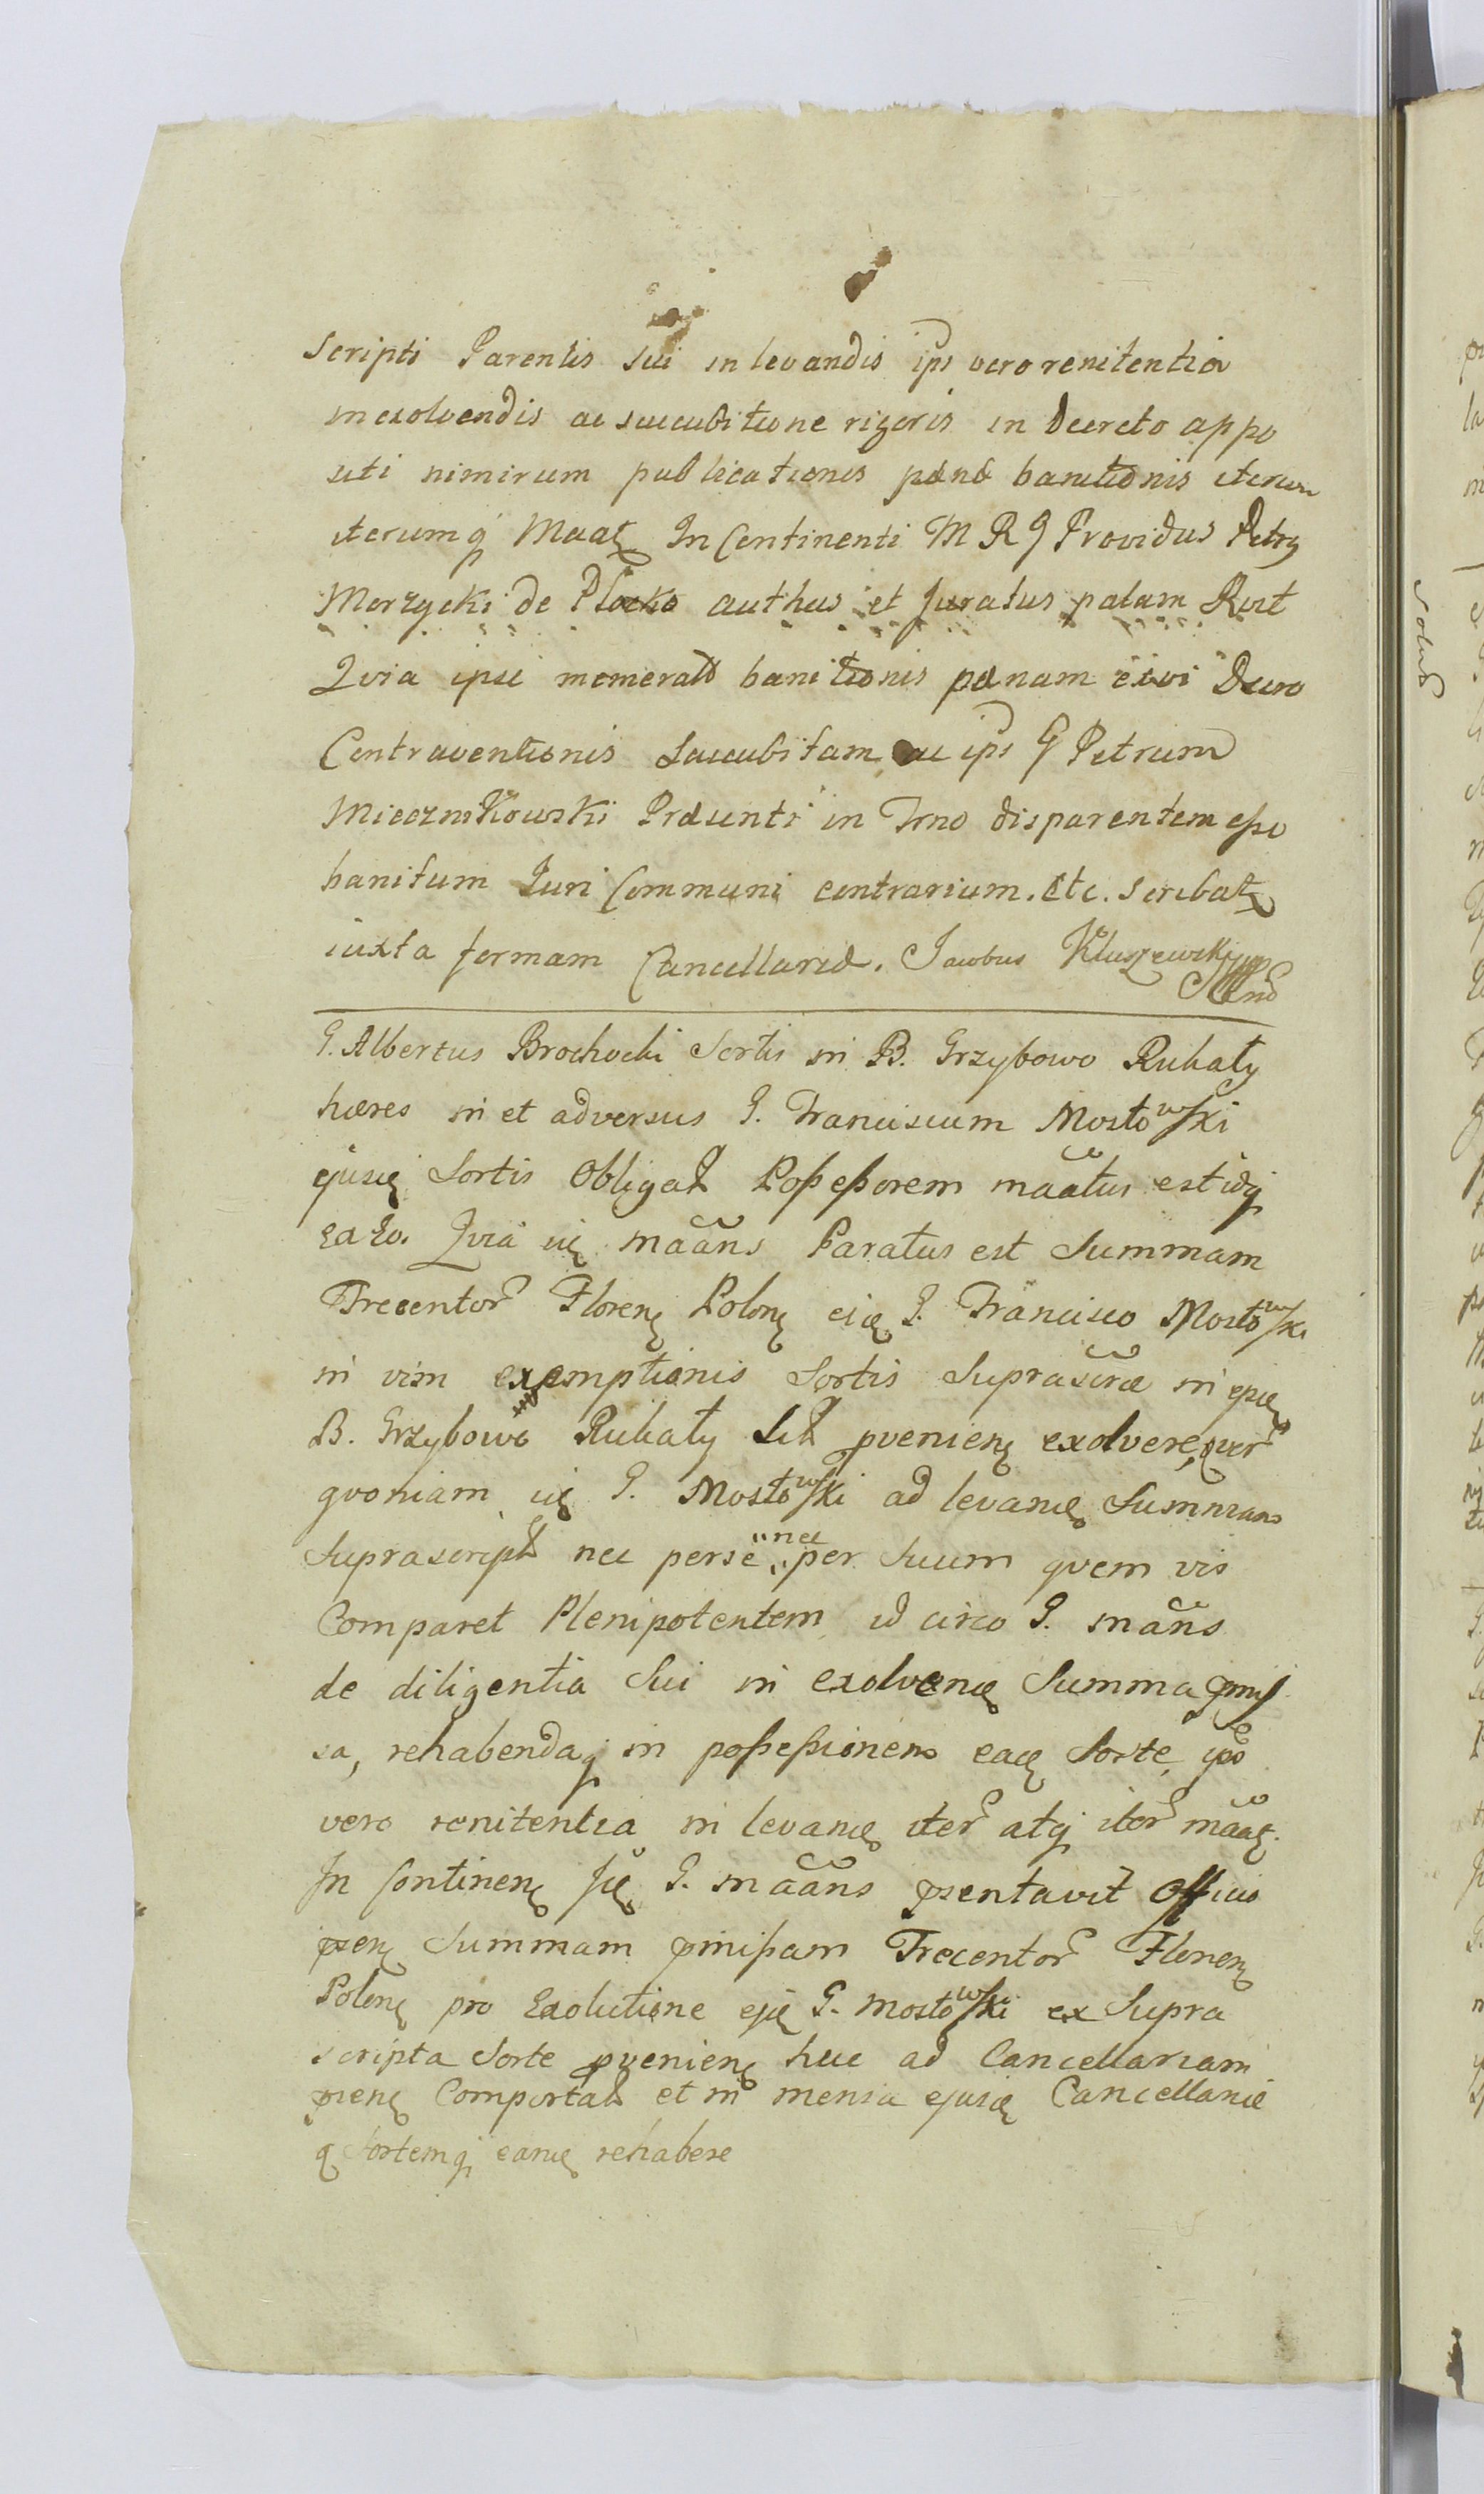 scripti Parentis sui in levandis ips vero renitentia
in exolvendis ac succubitione rigoris in Decreto appo
siti nimirum publicationis pænæ banitionis iterum
iterumq Maat In Continenti M R G Providus Petrg
Morzycki de Plocko authus et Juratus palam Rvit
Qvia ipse memerato banitionis pænam eivi Decro
Contraventionis Succubitam ac ips G Petrum
Miecznikowski Præsenti in Trno disparentem eße
banitum Iuri Communi contrarium. etc. Scribat
iuxta formam Cancellariæ. Jacobus Kluszewski
G. Albertus Brochocki Sortis in B. Grzybowo Rukały
hæres in et adversus G. Franciscum Mostowski
ejusd Sortis Obligat Poßeßorem maatus est idq
ea Ro. Qvia id maans Paratus est Summam
Trecentor Floren Polon eid G. Francisco Mostowski
in vim exemptionis Sortis Suprascræ in epid
B. Grzybowo Rukały Sit pvenien exolvere, ver
qvoniam id G. Mostowski ad levand Summam
Suprascript nec per se nec per Suum qvem vis
Comparet Plenipotentem id circo G. maans
de diligentia Sui in exolvend Summa pmis
sa, rehabendaq in poßeßionem ead Sorte, ipso
vero renitentia in levand iter atq iter maat.
In Continen Id G. maans psentavit Officio
psen Summam pmißam Trecentor Floren
Polon pro Exolutione ejd G. Mostowski ex Supra
scripta Sorte pvenien huc ad Cancellariam
psen Comportat et in mensa ejusd Cancellariæ
q Sortemq eand rehabere